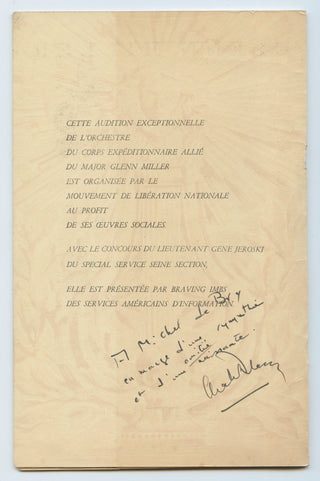 CETTE AUDITION EXCEPTIONNELLE
DE L'ORCHESTRE
DU CORPS EXPÉDITIONNAIRE ALLIÉ
DU MAJOR GLENN MILLER
EST ORGANISÉE PAR LE
MOUVEMENT DE LIBÉRATION NATIONALE
AU PROFIT
DE SES ŒUVRES SOCIALES.
AVEC LE CONCOURS DU LIEUTENANT GENE JEROSKI
DU SPECIAL SERVICE SEINE SECTION,
ELLE EST PRÉSENTÉE PAR BRAVING IMBS
DES SERVICES AMÉRICAINS D'INFORMATION.
Michel de Bry
en marge d'une sympathie
et d'une amitié naissante.